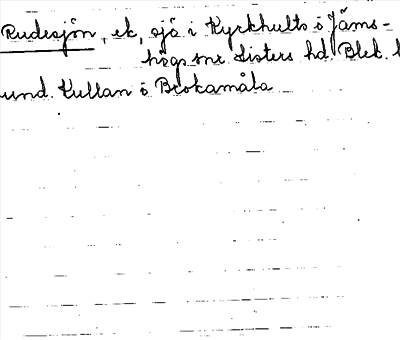 Rudesjön, ek, sjö i Kyrkhults o Jäms-
högs snr Listers hd. Blek. l
und. Kullan o Brokamåla